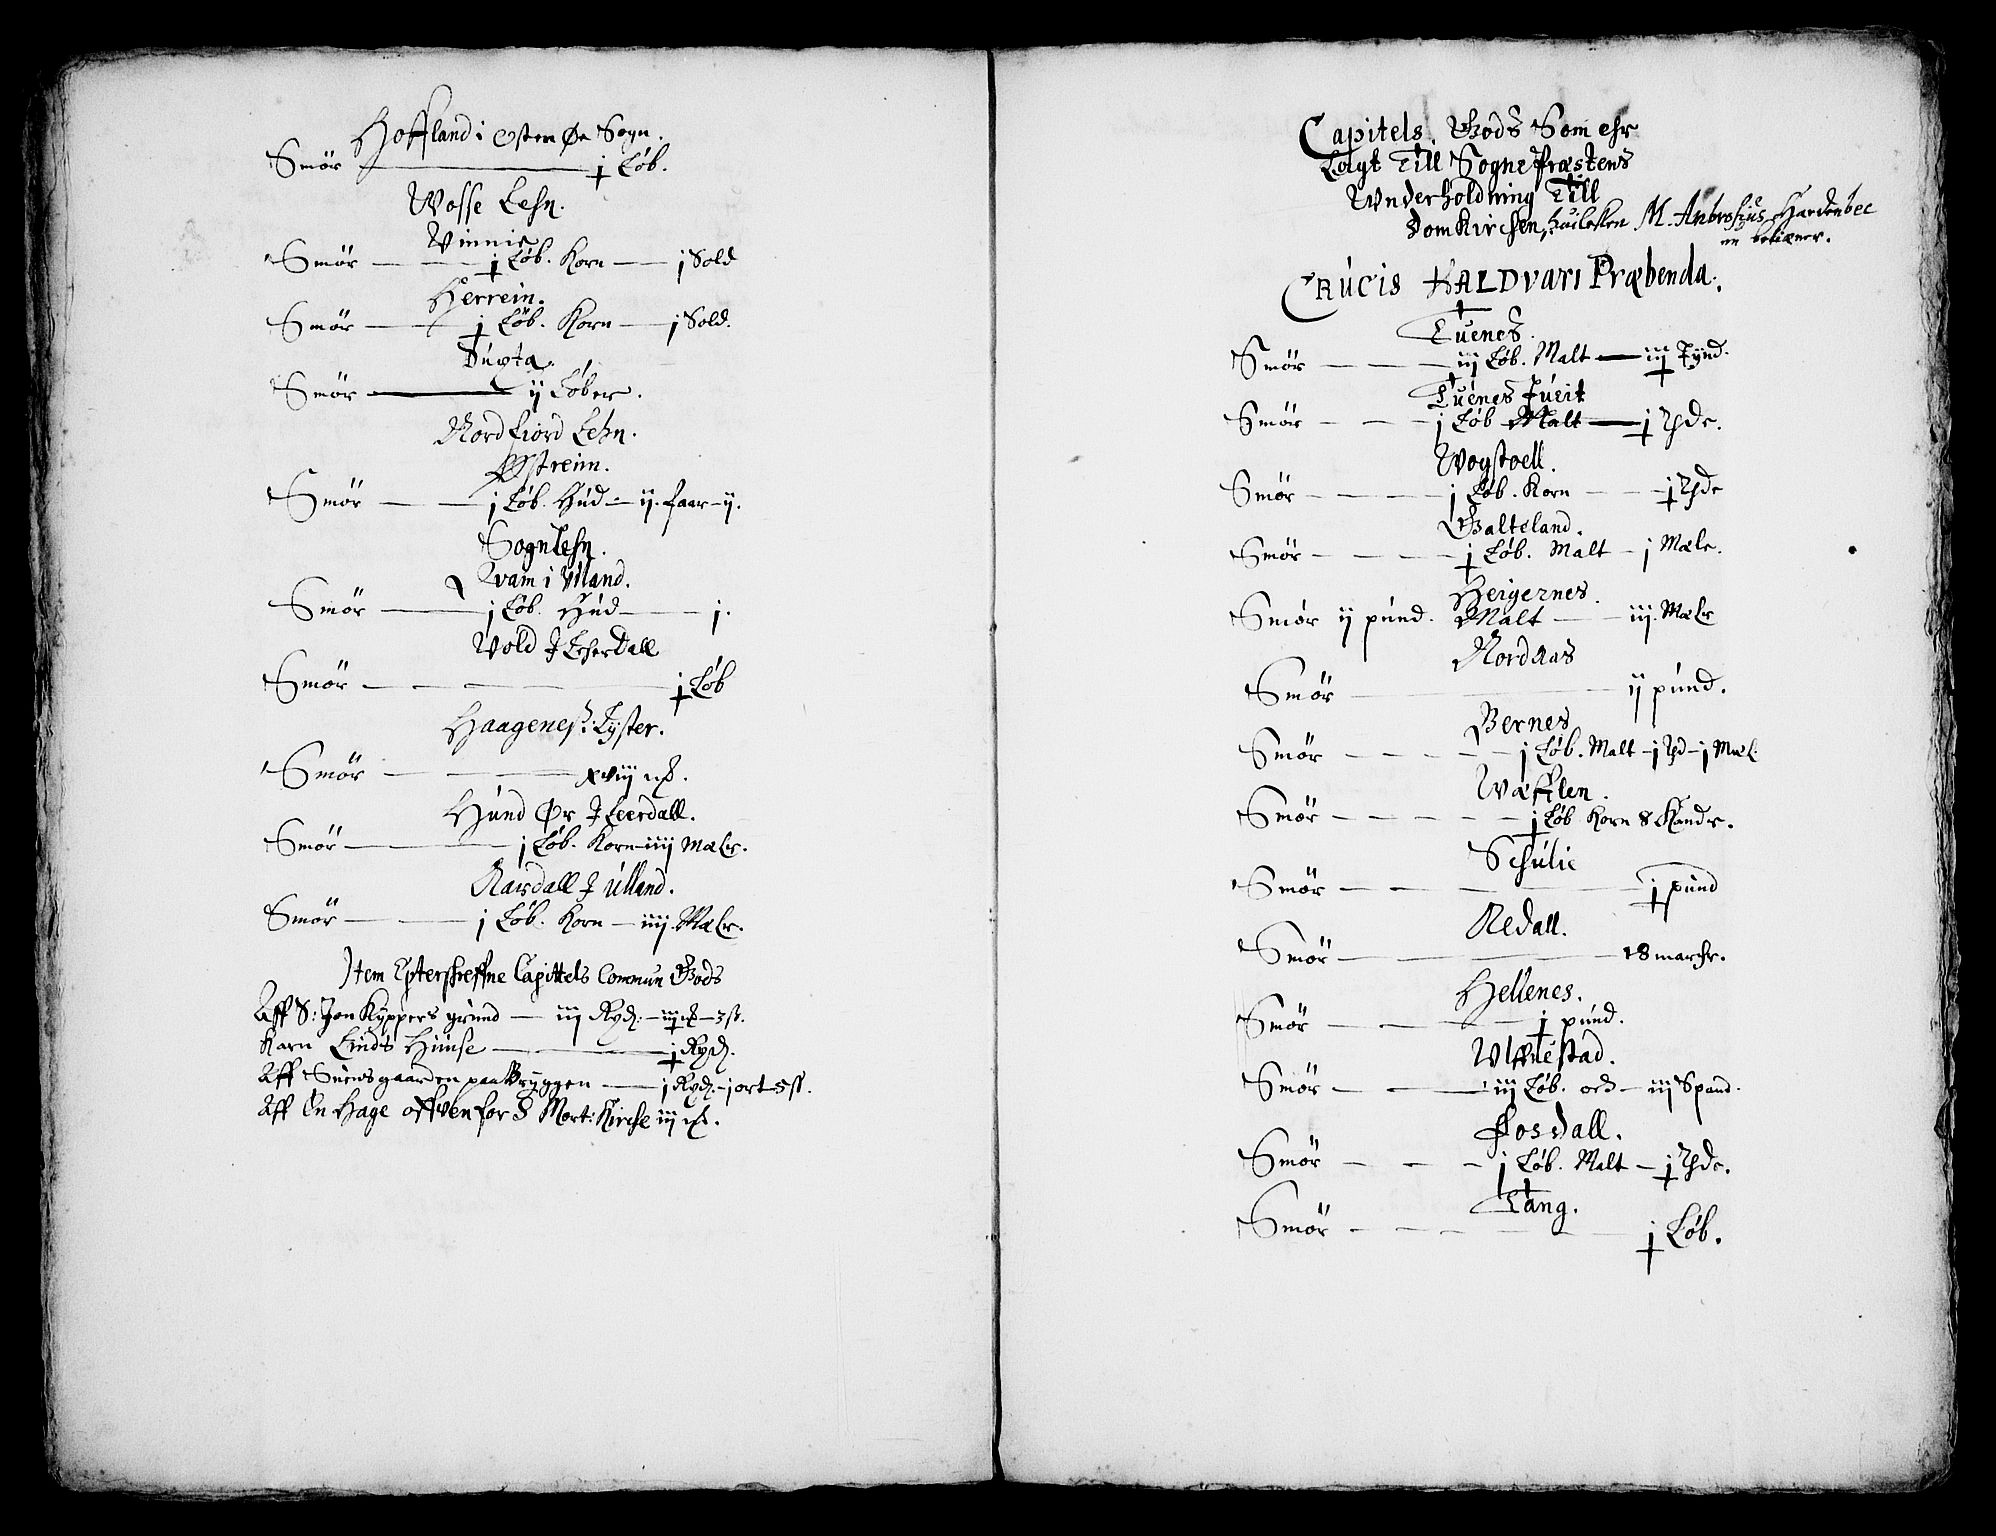 Hoffland i Osten Øe Sogn.
Smör j Löb.
Wosse Lehn.
Vinnie
Smör j Löb. Korn j Sold
Herrein.
Smör j Löb. Korn j Sold.
Duxta.
Smör ij Löber.
Nordfiord Lehn.
Ystreim.
Smör j Löb. Hud ij. faar ij.
Sognlehn.
Qvam i Vlland.
Smör j Löb. Hud j.
Wold J Leherdall
Smör j Löb
Haagenes i Lyster.
Smör xviij
Hund Ør J Leerdall.
Smör j Löb. Korn iiij Mæler.
Aarsdall J Ulland.
Smör j Löb. Korn iiij. Mæler.
Item Epterskreffne Capittels Commun Gods
Aff S: Jon Kyppers grund iij Ryd: iij 3 s.
Karn Linds Huuse j Ryd.
Aff Suensgaarden paa Bryggen j Ryd: j ort 5 ss.
Aff En Hage offven for S Mort: Kirche iij
Capitels Gods Som ehr
Lagt Till Sogne Præstens
Wnderholdning Till
Domkirchen, M. Ambrosius Hardenbec
nu betiæner.
CRUCIS HALDVARI Præbenda.
Tuenes.
Smör iij Löb. Malt iiij Tynd.
Tuenes Jueit
Smör j Löb Malt j
Wogstoell.
Smör j Löb. Korn j
Galteland.
Smör j Löb. Malt j Mæle.
Heigernes.
Smör ij pund. Malt iij. Mæler
Nordaas
Smör ij pund.
Bernes
Smör j Löb. Malt j j Mæl.
Wæfflen.
Smör j Löb Korn 8 Kander.
Schulie
Smör j pund
Aedall.
Smör 18 marcher.
Hellenes.
Smör j pund.
Ulffuestad.
Smör iij Löb. och iij Spand.
Fosdall.
Smör j Löb. Malt j
Tang.
Smör j Löb.